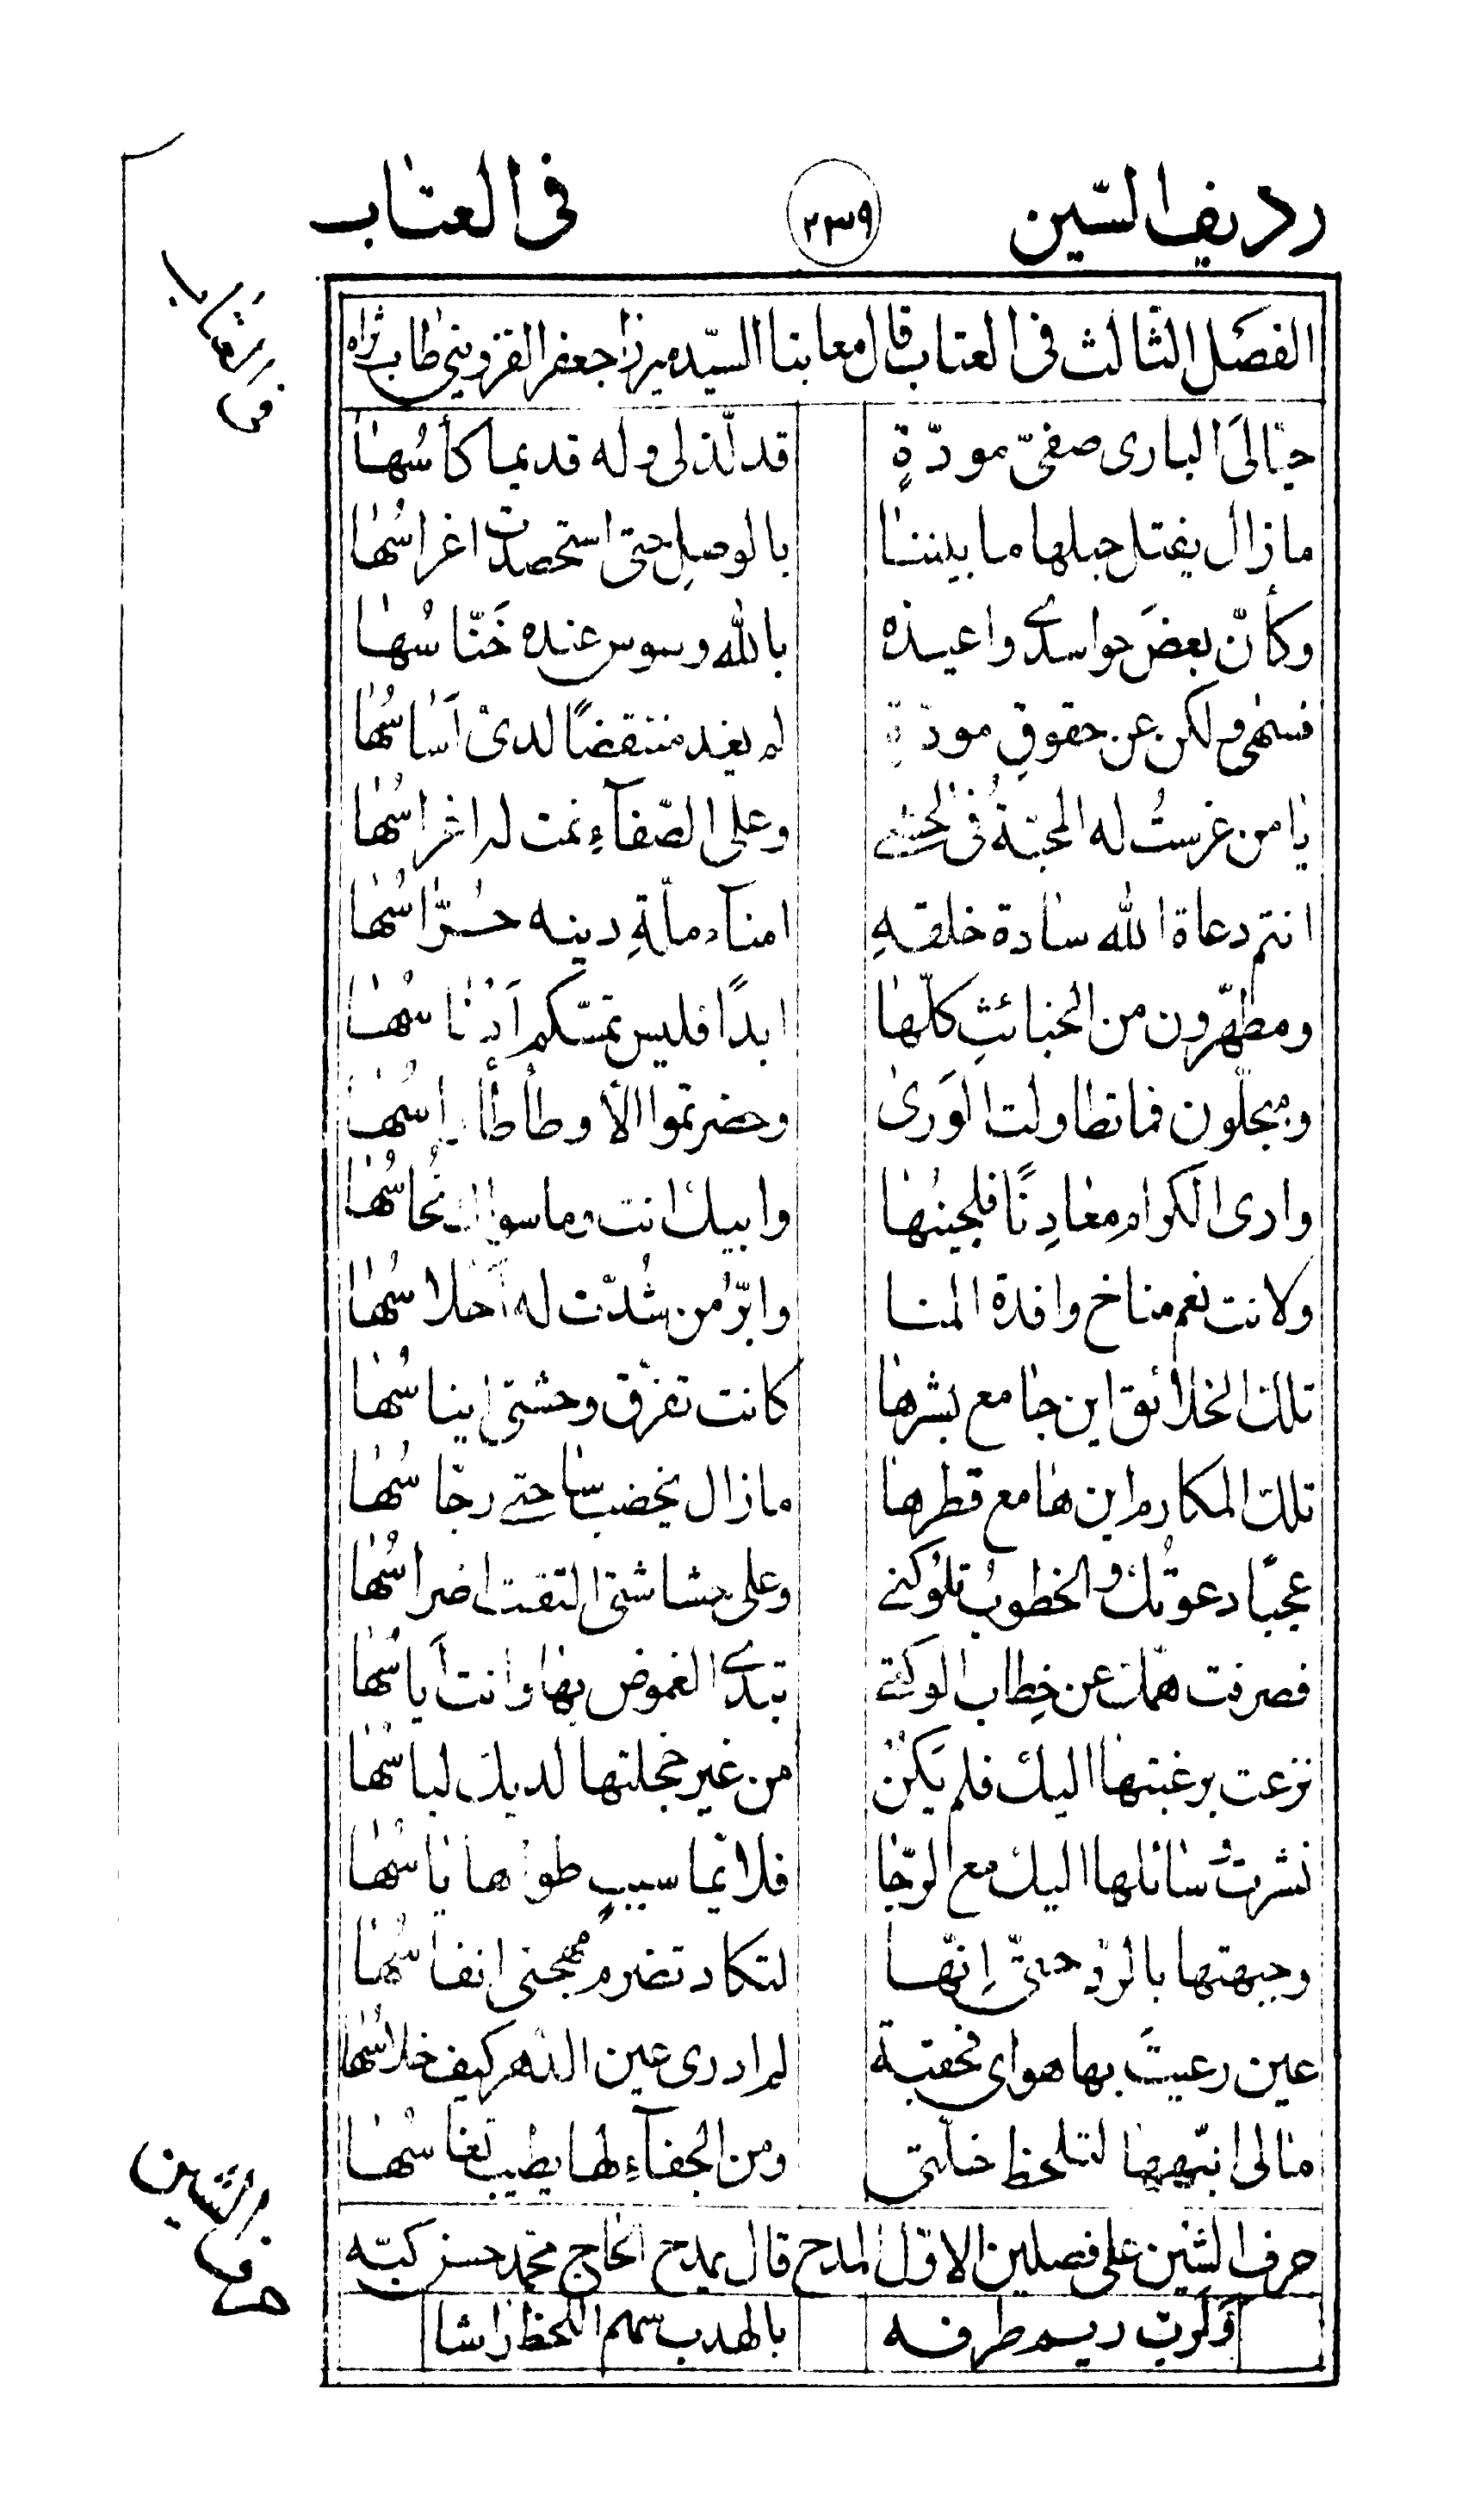 رديف السّين ٢٣٩ فى العتاب
الفصل الثالث فى العتاب قال معاتبا السيّد ميرزا جعفر القزوينى طاب ثراه
فى العتاب
حبّا لى البارى صفىّ مودّةٍ قد لذّ لى وله قديما كأسُها
مازال يفتل حبلها ما بيننا بالوصلِ حتى استحصدت اغراسُها
وكأنّ بعضَ حواسدى واعيذه بالله وسوس عنده خنّاسُها
فسهى ولكن عن حقوقِ مودّةٍ لم يغد منتقضًا لدىّ اَساسُها
يا من غرستُ له المحبّةُ فى الحشى وعلى الصّفآءِ نمت له اغراسُها
انتم دعاة الله سادة خلقهِ امنآء ملّةِ دينه حُرّاسُها
ومطهّرون من الخبائثِ كلّها ابدًا فليس تمسّكم اَدْناسُها
ومبجلّون فما تطاولت الوَرى وحضرتموا الاّ وطأطأ راسُها
وارى الكرامِ معادِنًا فلجينُها وابيك انت وما سواك نُحاسُها
ولانت نعم مناخ وافدة المنا وابرّ من شُدّت له اَحلاسُها
تلك الخلائق اين جامع بشرها كانت تفرّق وحشتى ايناسُها
تلك المكارم اين هامع قطرها مازال يخضب ساحتى رجّاسُها
عجبًا دعوتُك والخطوبُ تلوكنى وعلى حشاشتى التقت اضراسُها
فصرفت همّك عن خِطاب الوكتى تبدى الغموض بها وانت اَياسُها
نزعت برغبتها اليك فلم يَكُنْ من غير خجلتها لديك لباسُها
نشرتْ سائلها اليك مع الرّجا فلايّما سببٍ طواها ياسُها
وجبهتها بالردّ حتىّ اِنّها لتكاد تضرم مهجتى انفاسُها
عين رعيتَ بها هواى فحقبة لم ادرى عين الدّهر كيف خلاسُها
مالى انبّهها لتلحظ خلّتى ومن الجفآءِ لها يطيب نعاسُها
حرف الشّين على فصلين الاوّل المدح قال يمدح الحاج محمّد حسن كبّه
حرف الشين
وَلَربّ ريم طرفه بالهدب سهم اللحظ راشا